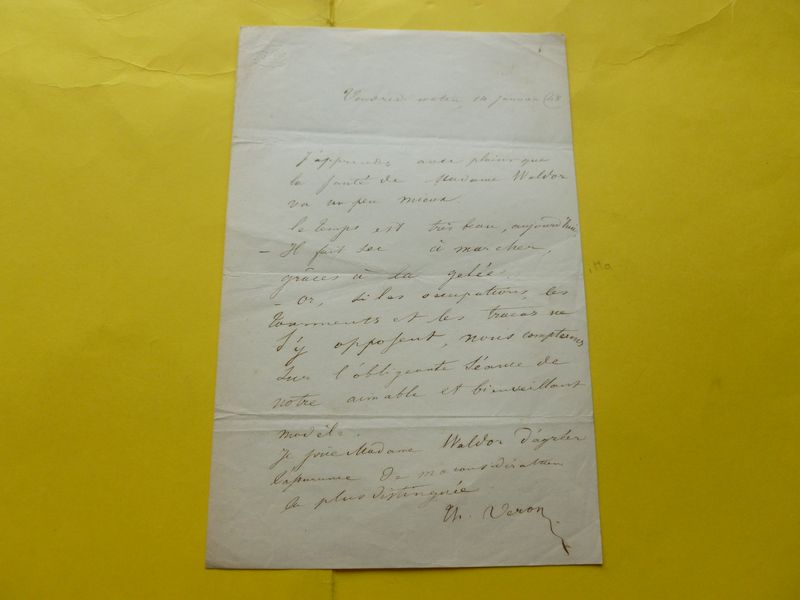 Vendredi matin, 14 janvier 48
J'apprends avec plaisir que
la santé de Madame Waldor
va un peu mieux.
le temps est très beau, aujourd'hui
- Il fait sec à marcher,
grâces à la gelée.
- or, si les occupations, les
tourments et les tracas ne
s'y opposent, nous comptons
sur l'obligeante séance de
notre aimable et bienveillant
modèle.
Je prie Madame Waldor d'agréer
l'expression de ma considération
la plus distinguée.
Th. Veron